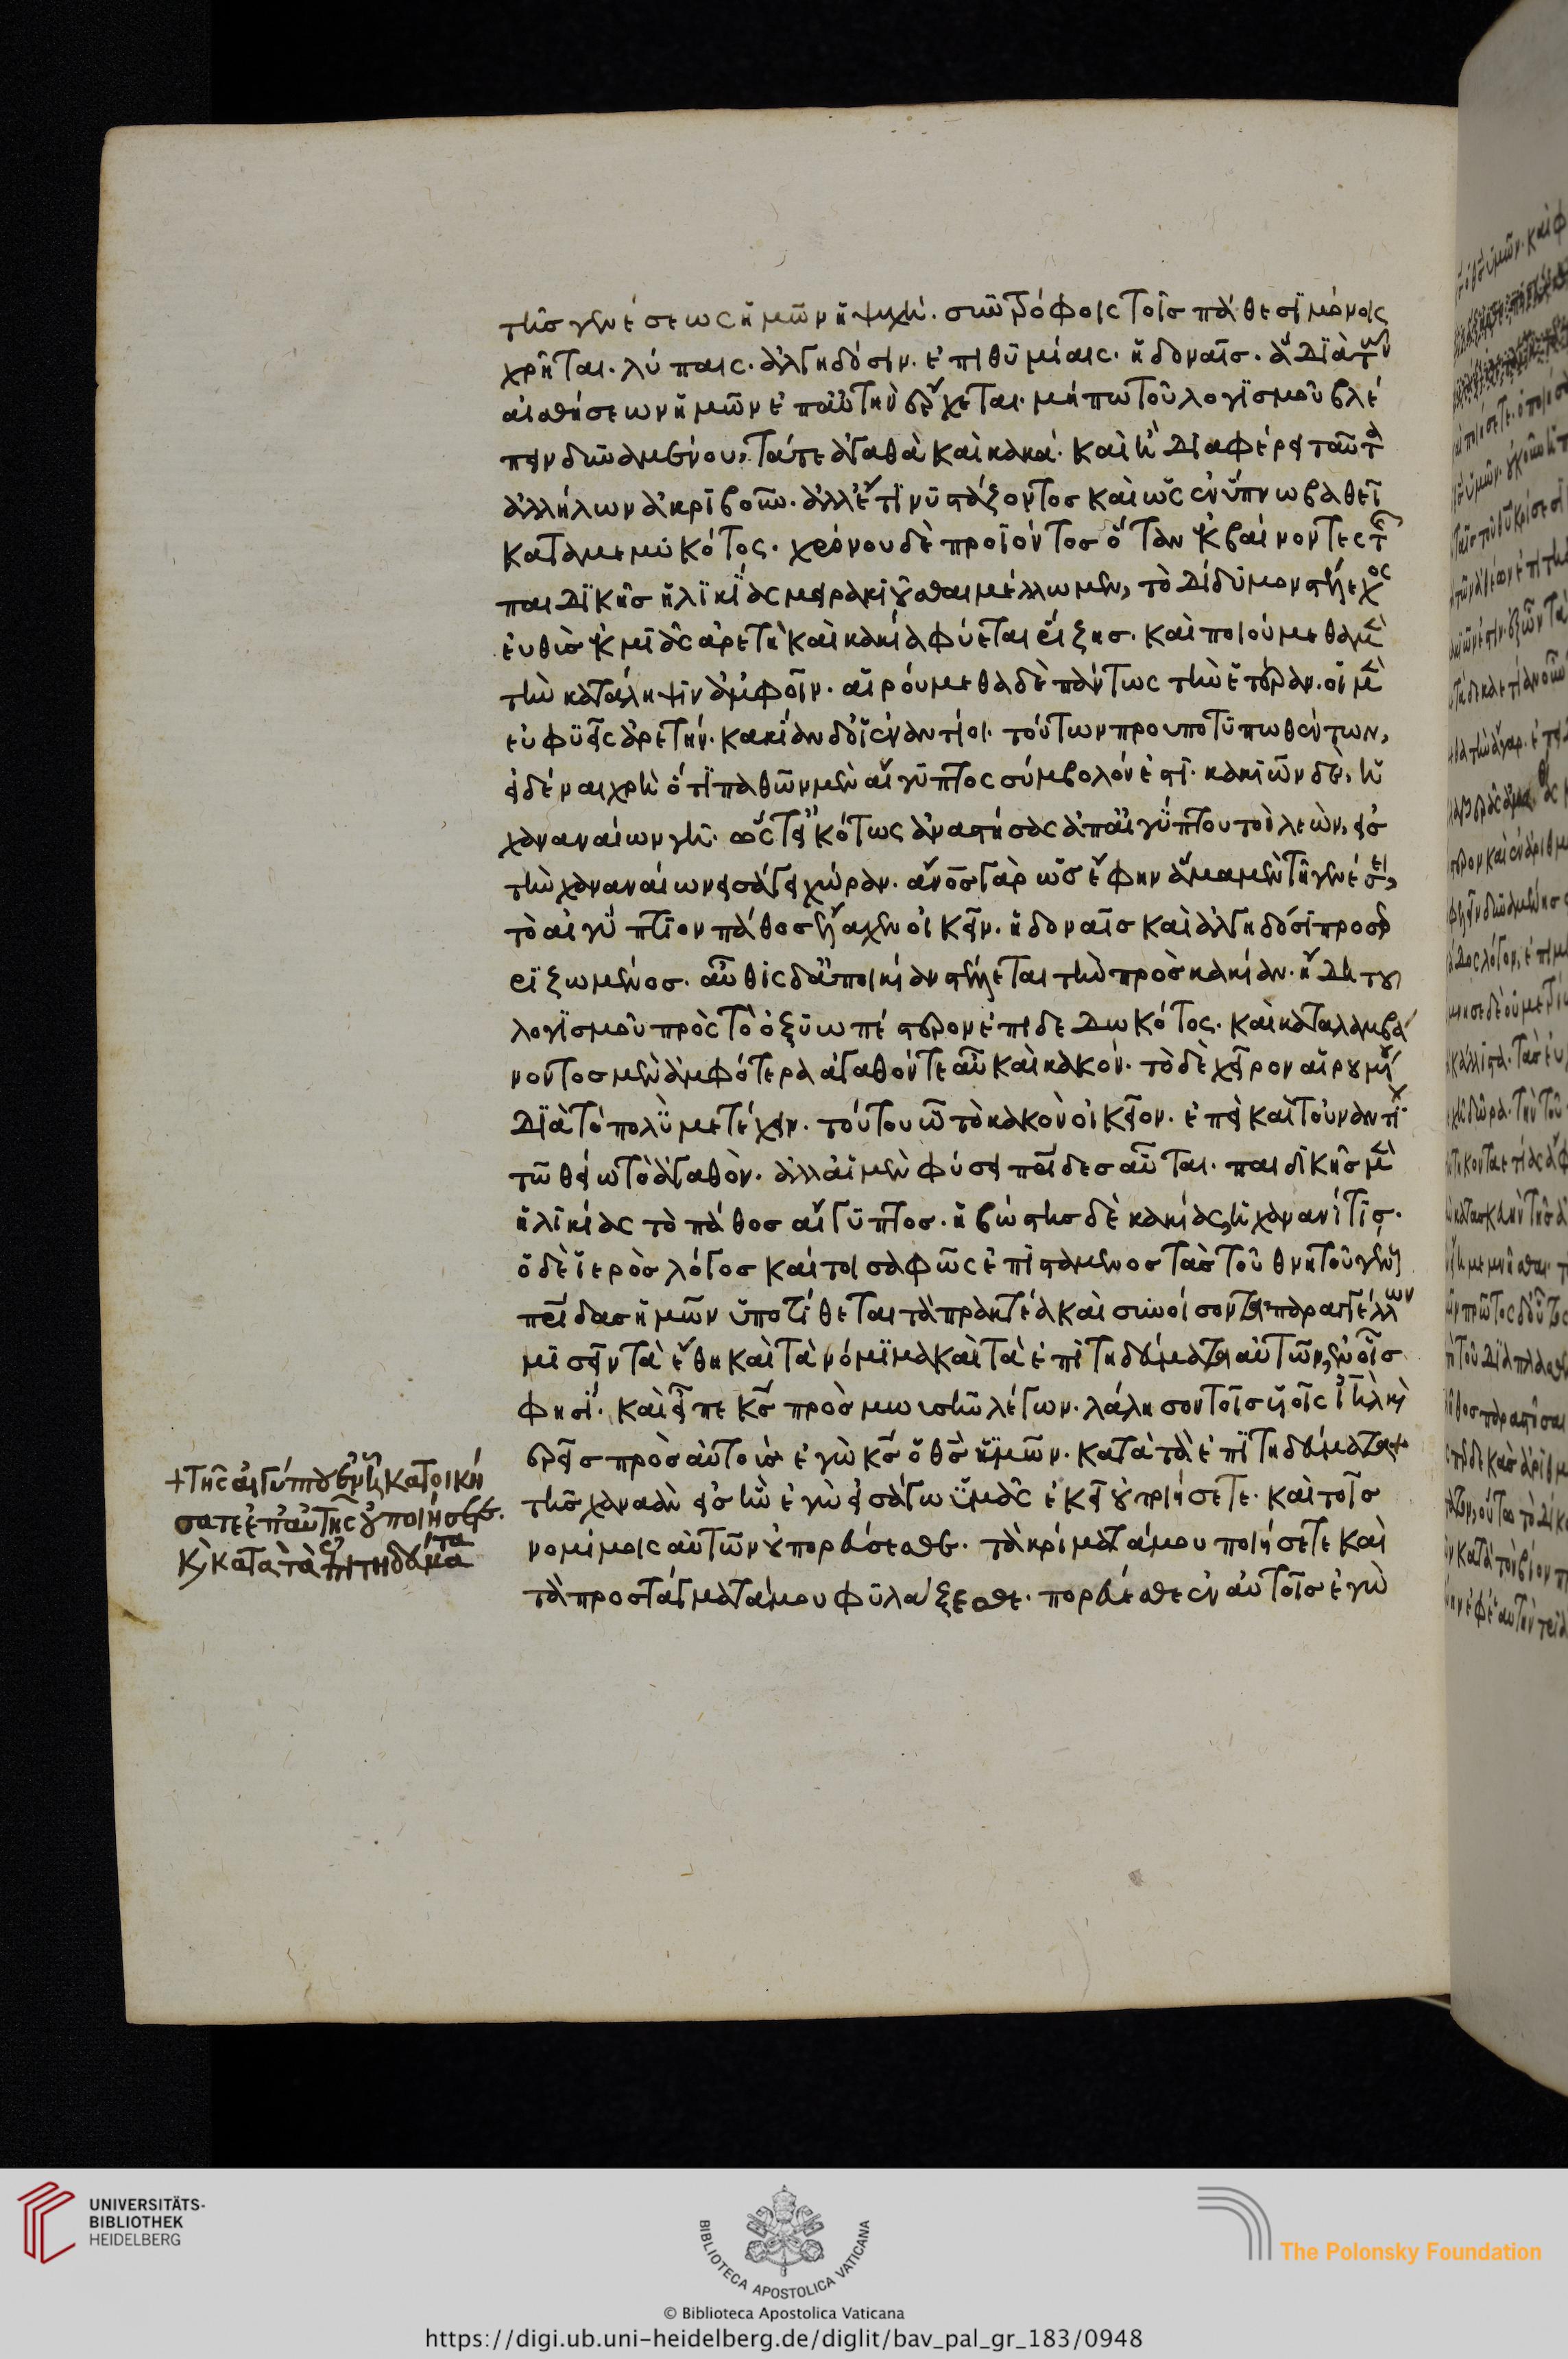 τῆς γενέσεως ἡμῶν ἡ ψυχὴ. συντρόφοις τοῖς πάθεσϊ μόνοις
χρῆται. λύπαις. ἀλγηδόσιν. ἐπιθϋμίαις. ἡδοναῖς. ἃ διὰ τῶν
αἰσθήσεων ἡμῶν ἐπ' αὐτὴν ἔρχεται. μήπω τοῦ λογϊσμοῦ βλέ
πειν δυναμένου, τά τε ἀγαθὰ καὶ κακά. καὶ ἣ διαφέρει ταῦτα
ἀλλήλων ἀκριβοῦν. ἀλλ' ἔτι νϋστάζοντος καὶ ὡς ἐν ὕπνω βαθεῖ
καταμεμϋκότος. χρόνου δὲ προϊόντος ὅταν ἐκβαίνοντες τῆς
παιδϊκῆς ἡλϊκίας μειρακιοῦσθαι μέλλωμεν, τὸ δίδϋμον στέλεχος
εὐθὺς ἐκ μιᾶς ἀρετὴ καὶ κακία φύεται ῥίζης. καὶ ποιούμεθα μὲν
τὴν κατάληψιν ἀμφοῖν. αἱρούμεθα δὲ πάντως τὴν ἑτέραν. οἱ μὲν
εὐφϋεῖς ἀρετήν. κακίαν δ' οἱ ἐναντίοι. τούτων προυποτϋπωθέντων,
εἰδέναι χρὴ ὅτι παθῶν μὲν αἴγϋπτος σύμβολόν ἐστι. κακιῶν δὲ, ἡ
χαναναίων γῆ. ὥστ' εἰκότως ἀναστήσας ἀπ' αἰγύπτου τὸν λεὼν, εἰς
τὴν χαναναίων εἰσάγει χώραν. ἄνος γὰρ ὡς ἔφην ἅμα μὲν τῆ γενέσει,
τὸ αἰγύπτϊον πάθος ἔλαχεν οἰκεῖν. ἡδοναῖς καὶ ἀλγηδόσϊ προσερ
ριζωμένος. αὖθις δ' ἀποικίαν στέλλεται τὴν πρὸς κακίαν. ἤδη του
λογϊσμοῦ πρὸς τὸ ὀξϋωπέστερον ἐπιδεδωκότος. καὶ καταλαμβά
νοντος μὲν ἀμφότερα ἀγαθόν τε αὖ καὶ κακόν. τὸ δὲ χεῖρον αἱρουμέν
διὰ τὸ πολὺ μετέχειν. τοῦ θνητοῦ ὧ τὸ κακὸν οἰκεῖον. ἐπεὶ καὶ τοὐναντίον
τῶ θείω τὸ ἀγαθὸν. ἀλλ' αἱ μὲν φύσει πατρίδες αὗται. παιδϊκῆς μὲν
ἡλϊκίας τὸ πάθος αἴγϋπτος. ἡβώσης δὲ κακίας, ἡ χανανῖτϊς.
ὁ δὲ ἱερὸς λόγος καίτοι σαφῶς ἐπιστάμενος τὰς τοῦ θνητοῦ γένους
πατρίδας ἡμῶν ὑποτίθεται τὰ πρακτέα καὶ συνοίσοντα παραγγέλλων
μϊσεῖν τὰ ἔθη καὶ τὰ νόμϊμα καὶ τὰ ἐπϊτηδεύματα αὐτῶν, ἐν οἷς
φησϊ. καὶ εἶπε κς πρὸς μωυσῆν λέγων. λάλησον τοῖς υἱοῖς ἰηλ καὶ
ἐρεῖς πρὸς αὐτούς ἐγὼ κς ὁ θς ὑμῶν. κατὰ τὰ ἐπϊτηδεύματα +
τῆς χαναὰν εἰς ἣν ἐγὼ εἰσάγω ὑμᾶς ἐκεῖ οὐ ποιήσετε. καὶ τοῖς
νομίμοις αὐτῶν οὐ πορεύσεσθε. τὰ κρίματά μου ποιήσετε καὶ
τὰ προστάγματά μου φϋλάξεσθε. πορεύεσθε ἐν αὐτοῖς ἐγὼ
+ τῆς αἰγύπτου ἐν ᾗ κατοικη
σατε ἐπ' αὐτῆς οὐ ποιήσετε.
κ κατὰ τὰ ἐπιτηδεύματα
UNIVERSITÄTS-
BIBLIOTHEK
HEIDELBERG
BIBLIOTECA APOSTOLICA VATICANA
The Polonsky Foundation
© Biblioteca Apostolica Vaticana
https://digi.ub.uni-heidelberg.de/diglit/bav_pal_gr_183/0948